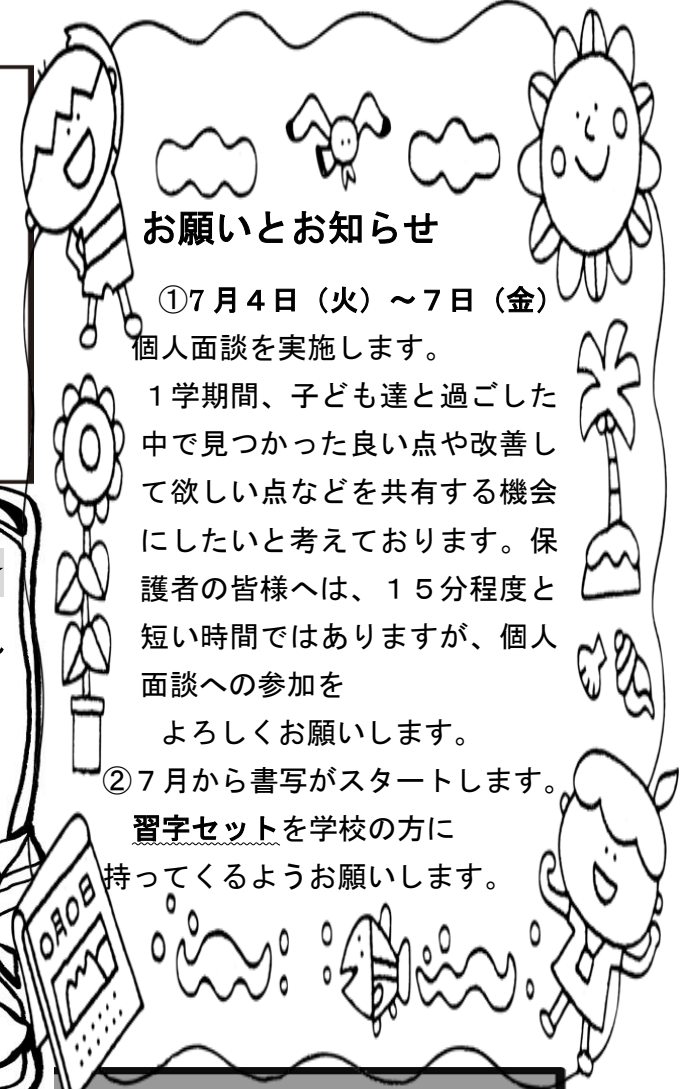 お願いとお知らせ
①7月４日（火）～７日（金）
個人面談を実施します。
１学期間、子ども達と過ごした
中で見つかった良い点や改善し
て欲しい点などを共有する機会
にしたいと考えております。保
護者の皆様へは、１５分程度と
短い時間ではありますが、個人
面談への参加を
よろしくお願いします。
②７月から書写がスタートします。
習字セットを学校の方に
持ってくるようお願いします。
○月○日